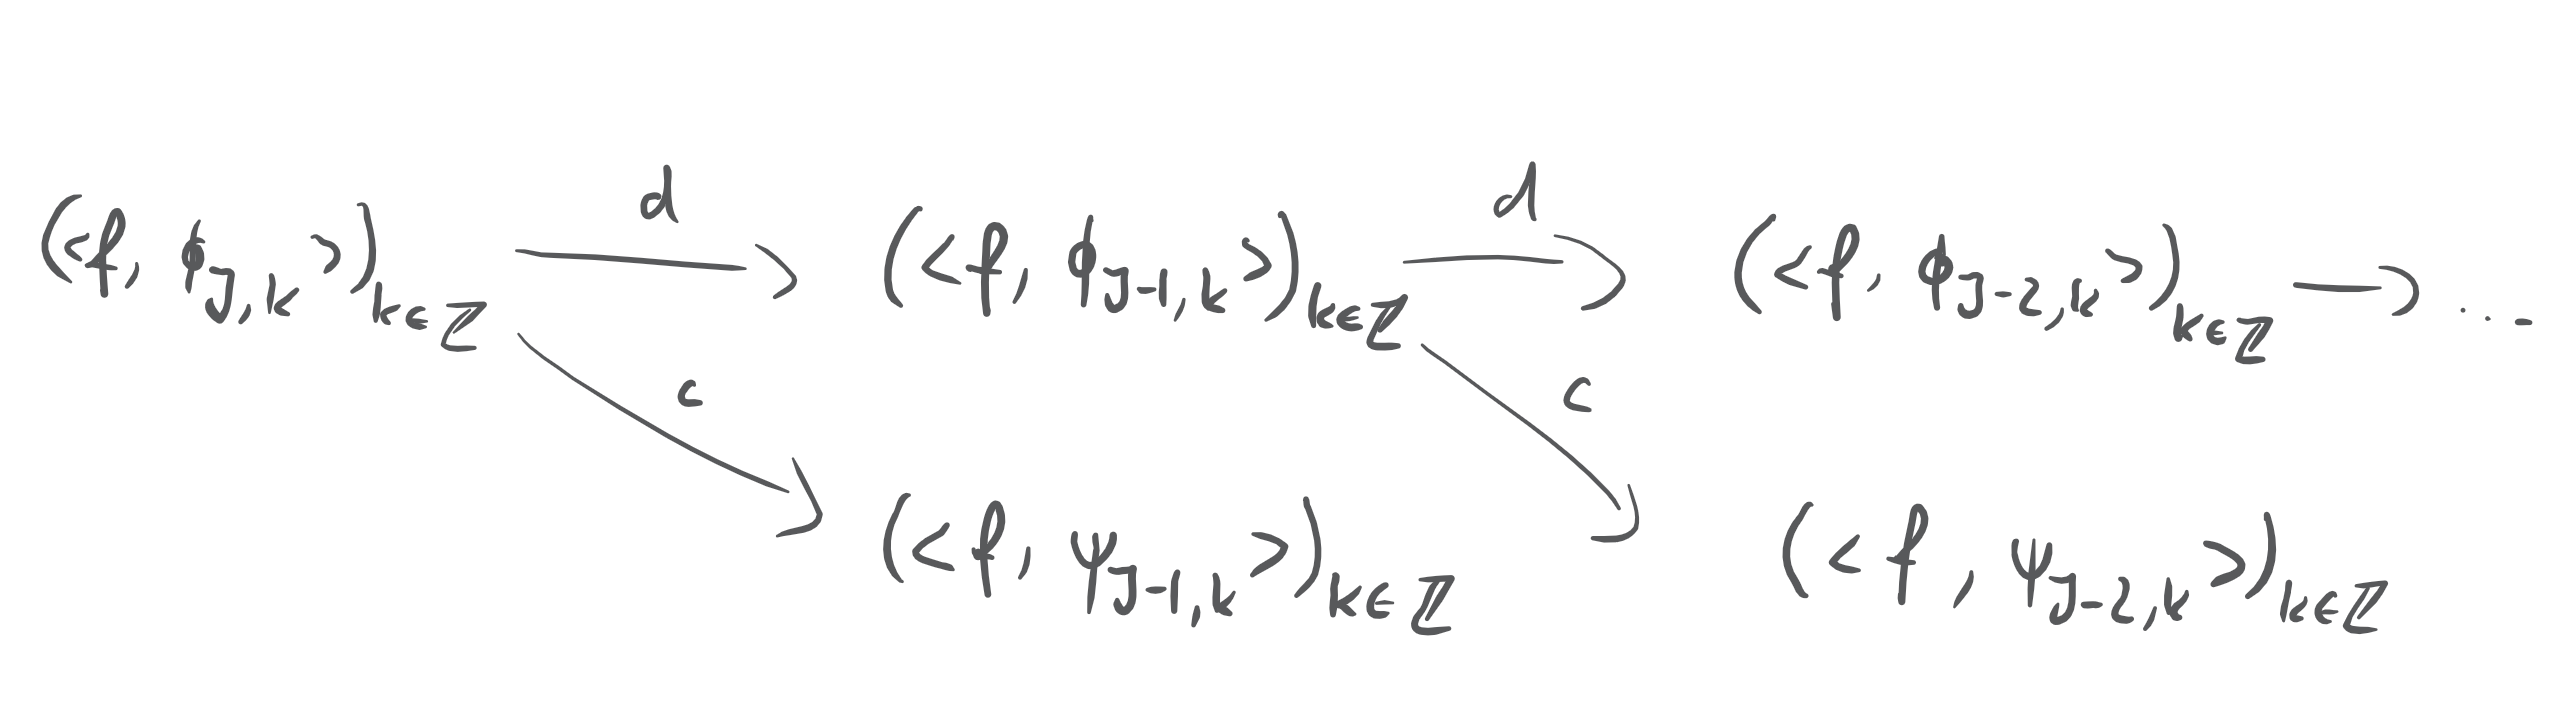 d d
(<f, ϕ_{J,k}>)_{k∈ℤ} ⟶ (<f, ϕ_{J-1,k}>)_{k∈ℤ} ⟶ (<f, ϕ_{J-2,k}>)_{k∈ℤ} ⟶ ...
c c
(<f, ψ_{J-1,k}>)_{k∈ℤ} (<f, ψ_{J-2,k}>)_{k∈ℤ}